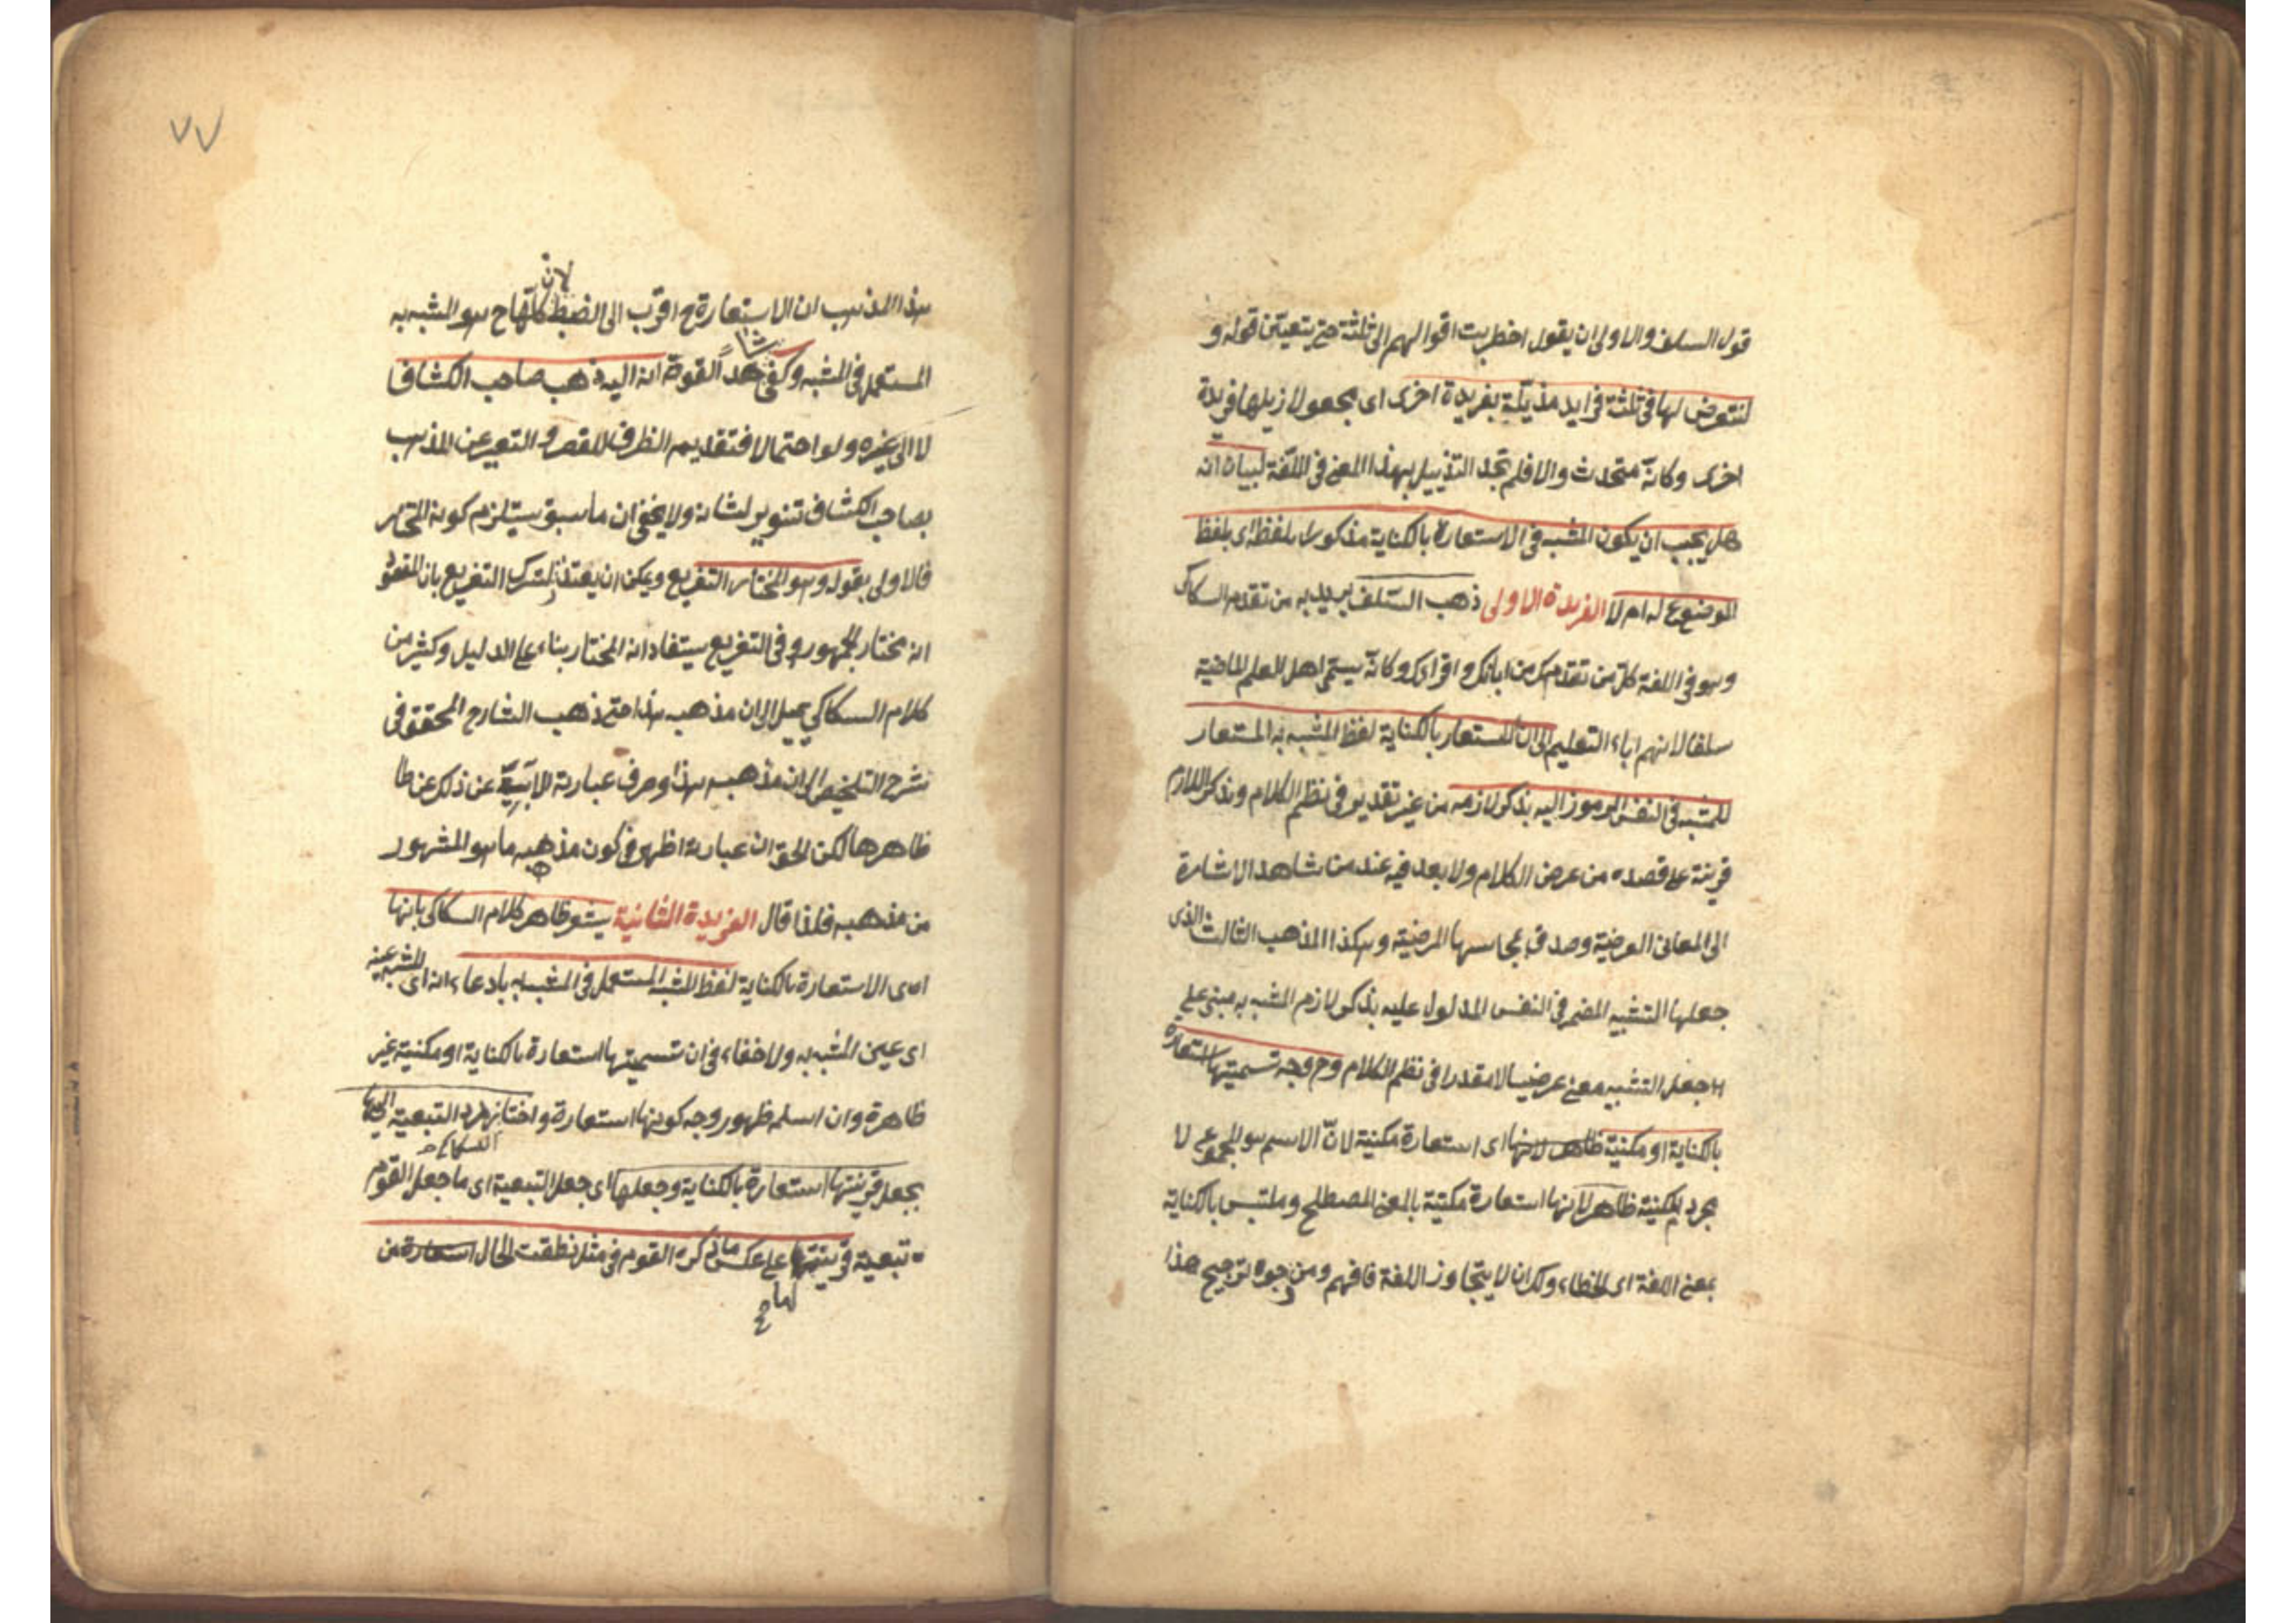 قول السلف والاولى ان يقول اضطربت اقوالهم الى ثلثة حتى يتعين قوله و
لنتعرض لها فى ثلثة فرايد مذيلة بفريدة اخرى اى مجعولا ذيلها فريدة
اخرى وكانه متحدث والا فلم نجد التذييل بهذا المعنى فى اللغة لبيان انه
هل يجب ان يكون المشبه فى الاستعارة بالكناية مذكورا بلفظه اى بلفظ
الموضوع له ام لا الفريدة الاولى ذهب السلف يريد به من تقدم السكاكى
وهو فى اللغة كل من تقدمك من ابائك و اقرابك وكانه يسمى اهل العلم الماضية
سلفا لانهم اباء التعليم الى ان المستعار بالكناية لفظ المشبه به المستعار
للمشبه فى النفس المرموز اليه بذكر لازمه من غير تقدير فى نظم الكلام وبذكر اللازم
قرينة على قصده من عرض الكلام ولا بعد فيه عند من شاهد الاشارة
الى المعانى العرضية وصدق مجاسها المرضية وهكذا المذهب الثالث الذى
جعلها التشبيه المضمر فى النفس المدلول عليه بذكر لازم المشبه به مبنى على
جعل التشبيه معنى عرضيا لا مقدرا فى نظم الكلام وح وجه تسميتها استعارة
بالكناية او مكنية ظاهر لانها اى استعارة مكنية لان الاسم هو المجموع لا
مجرد المكنية ظاهر لانها استعارة مكنية بالمعنى المصطلح وملتبس بالكناية
بمعنى اللغة اى الخفاء ولك ان لا يتجاوز اللغة فافهم ومن وجوه ترجيح هذا
٧٧
هذا المذهب ان الاستعارة ح اقرب الى الضبط لان كلها ح هو المشبه به
المستعمل فى المشبه وكفى شاهدا لقوته انه اليه ذهب صاحب الكشاف
لا الى غيره ولو احتمالا فتقديم الظرف للقصر و التعبير عن المذهب
بصاحب الكشاف تنوير لشانه ولا يخفى ان ما سبق يستلزم كونه المختار
فالاولى بقوله وهو المختار التفريع ويمكن ان يعتذر لترك التفريع بان المقصود
انه مختار الجمهور و فى التفريع يستفاد انه المختار بناء على الدليل وكثير من
كلام السكاكي يميل الى ان مذهبه هذا حتى ذهب الشارح المحقق فى
شرح التلخيص الى ان مذهبه هذا وصرف عبارته الآبية عن ذلك عن
ظاهرها لكن الحق ان عبارته اظهر فى كون مذهبه ما هو المشهور
من مذهبه فلذا قال الفريدة الثانية يشعر ظاهر كلام السكاكى بانها
اى الاستعارة بالكناية لفظ المشبه المستعمل فى المشبه به بادعاء انه اى المشبه عينه
اى عين المشبه به ولا خفاء فى ان تسميتها استعارة بالكناية او مكنية غير
ظاهرة وان اسلم ظهور وجه كونها استعارة و اختار رد التبعية اليها
السكاكى
بجعل قرينتها استعارة بالكناية وجعلها اى جعل التبعية اى ما جعل القوم
تبعية قرينتها على عكس ما ذكره القوم فى مثل نطقت الحال استعارة من
لها